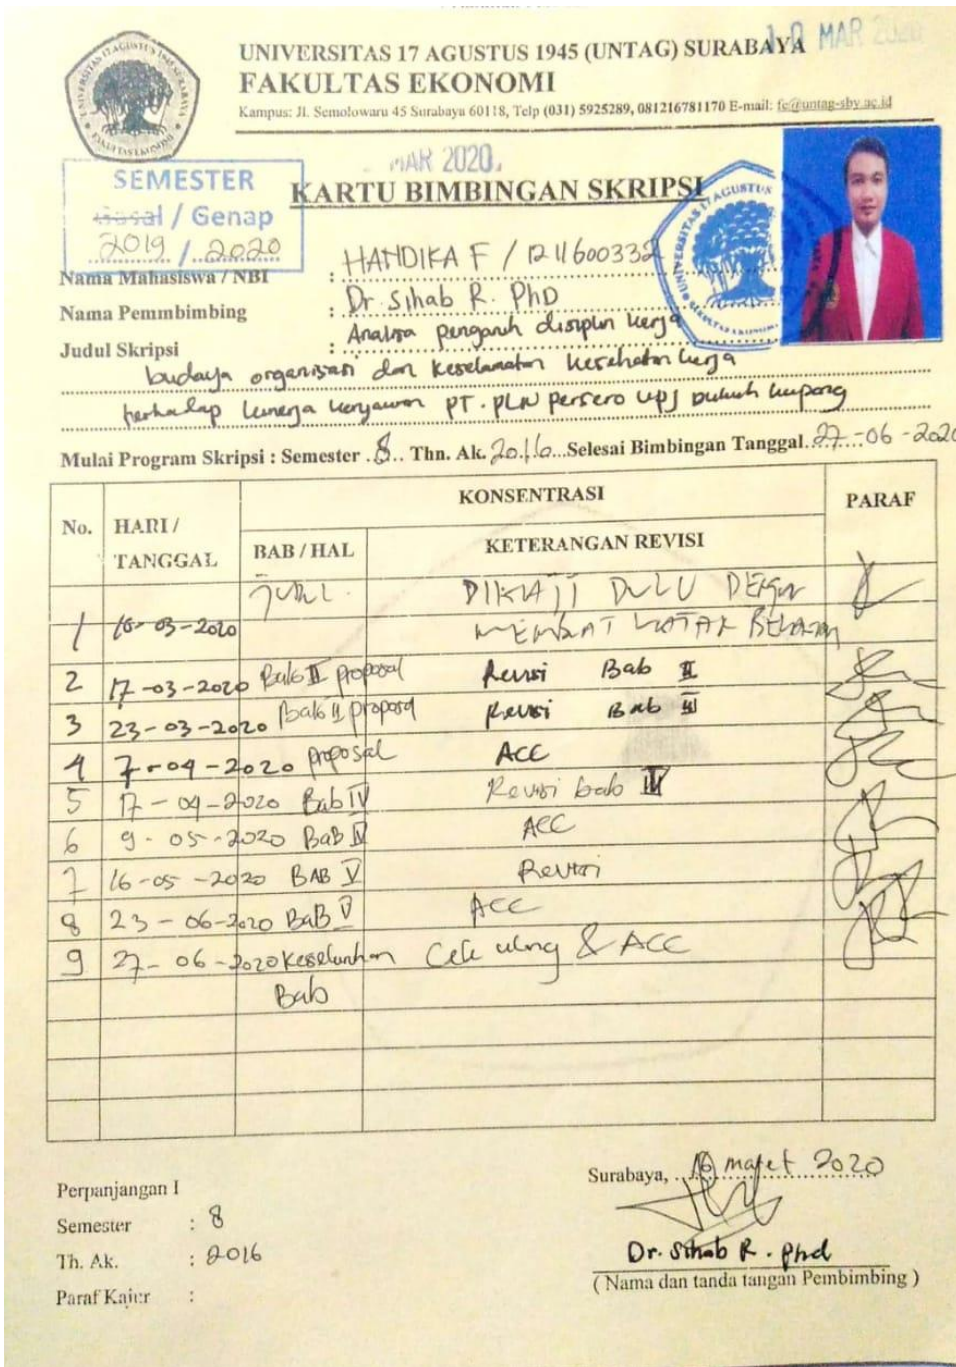 10 MAR 2020
UNIVERSITAS 17 AGUSTUS 1945 (UNTAG) SURABAYA
FAKULTAS EKONOMI
Kampus: Jl. Semolowaru 45 Surabaya 60118, Telp (031) 5925289, 081216781170 E-mail: fe@untag-sby.ac.id
MAR 2020
SEMESTER
Gasal / Genap
2019 / 2020
KARTU BIMBINGAN SKRIPSI
Nama Mahasiswa / NBI : HANDIKA F / 1211600332
Nama Pemmbimbing : Dr. Sihab R. PhD
Judul Skripsi : Analisa pengaruh disiplin kerja
budaya organisasi dan keselamatan kesehatan kerja
terhadap kinerja karyawan PT. PLN persero UPJ dukuh kupang
Mulai Program Skripsi : Semester 8 Thn. Ak. 2016 Selesai Bimbingan Tanggal 27-06-2020
No. HARI / TANGGAL KONSENTRASI PARAF
BAB / HAL KETERANGAN REVISI
JUDUL DIKAJI DULU DENGAN
1 10-03-2020 MEMBUAT LATAR BELAKANG
2 17-03-2020 Bab II proposal Revisi Bab II
3 23-03-2020 Bab II proposal Revisi Bab III
4 7-04-2020 proposal ACC
5 17-04-2020 Bab IV Revisi bab IV
6 9-05-2020 BaB IV ACC
7 16-05-2020 BAB V Revisi
8 23-06-2020 BaB V ACC
9 27-06-2020 Keseluruhan Cek ulang & ACC
Bab
Surabaya, 10 maret 2020
Perpanjangan I
Semester : 8
Th. Ak. : 2016
Paraf Kajur :
Dr. Sihab R. Phd
( Nama dan tanda tangan Pembimbing )